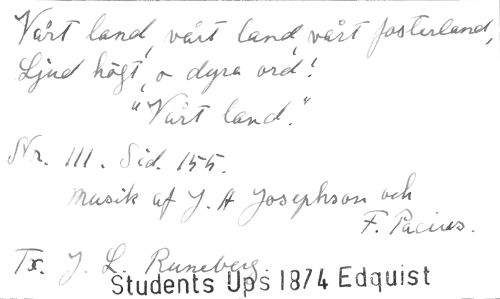 Vårt land, vårt land, vårt fosterland,
Ljud högt, o dyra ord!
"Vårt land."
Nr. 111. Sid. 155.
Musik af J. A Josephson och
F. Pacius.
Tx. J. L. Runeberg.
Students Ups 1874 Edquist